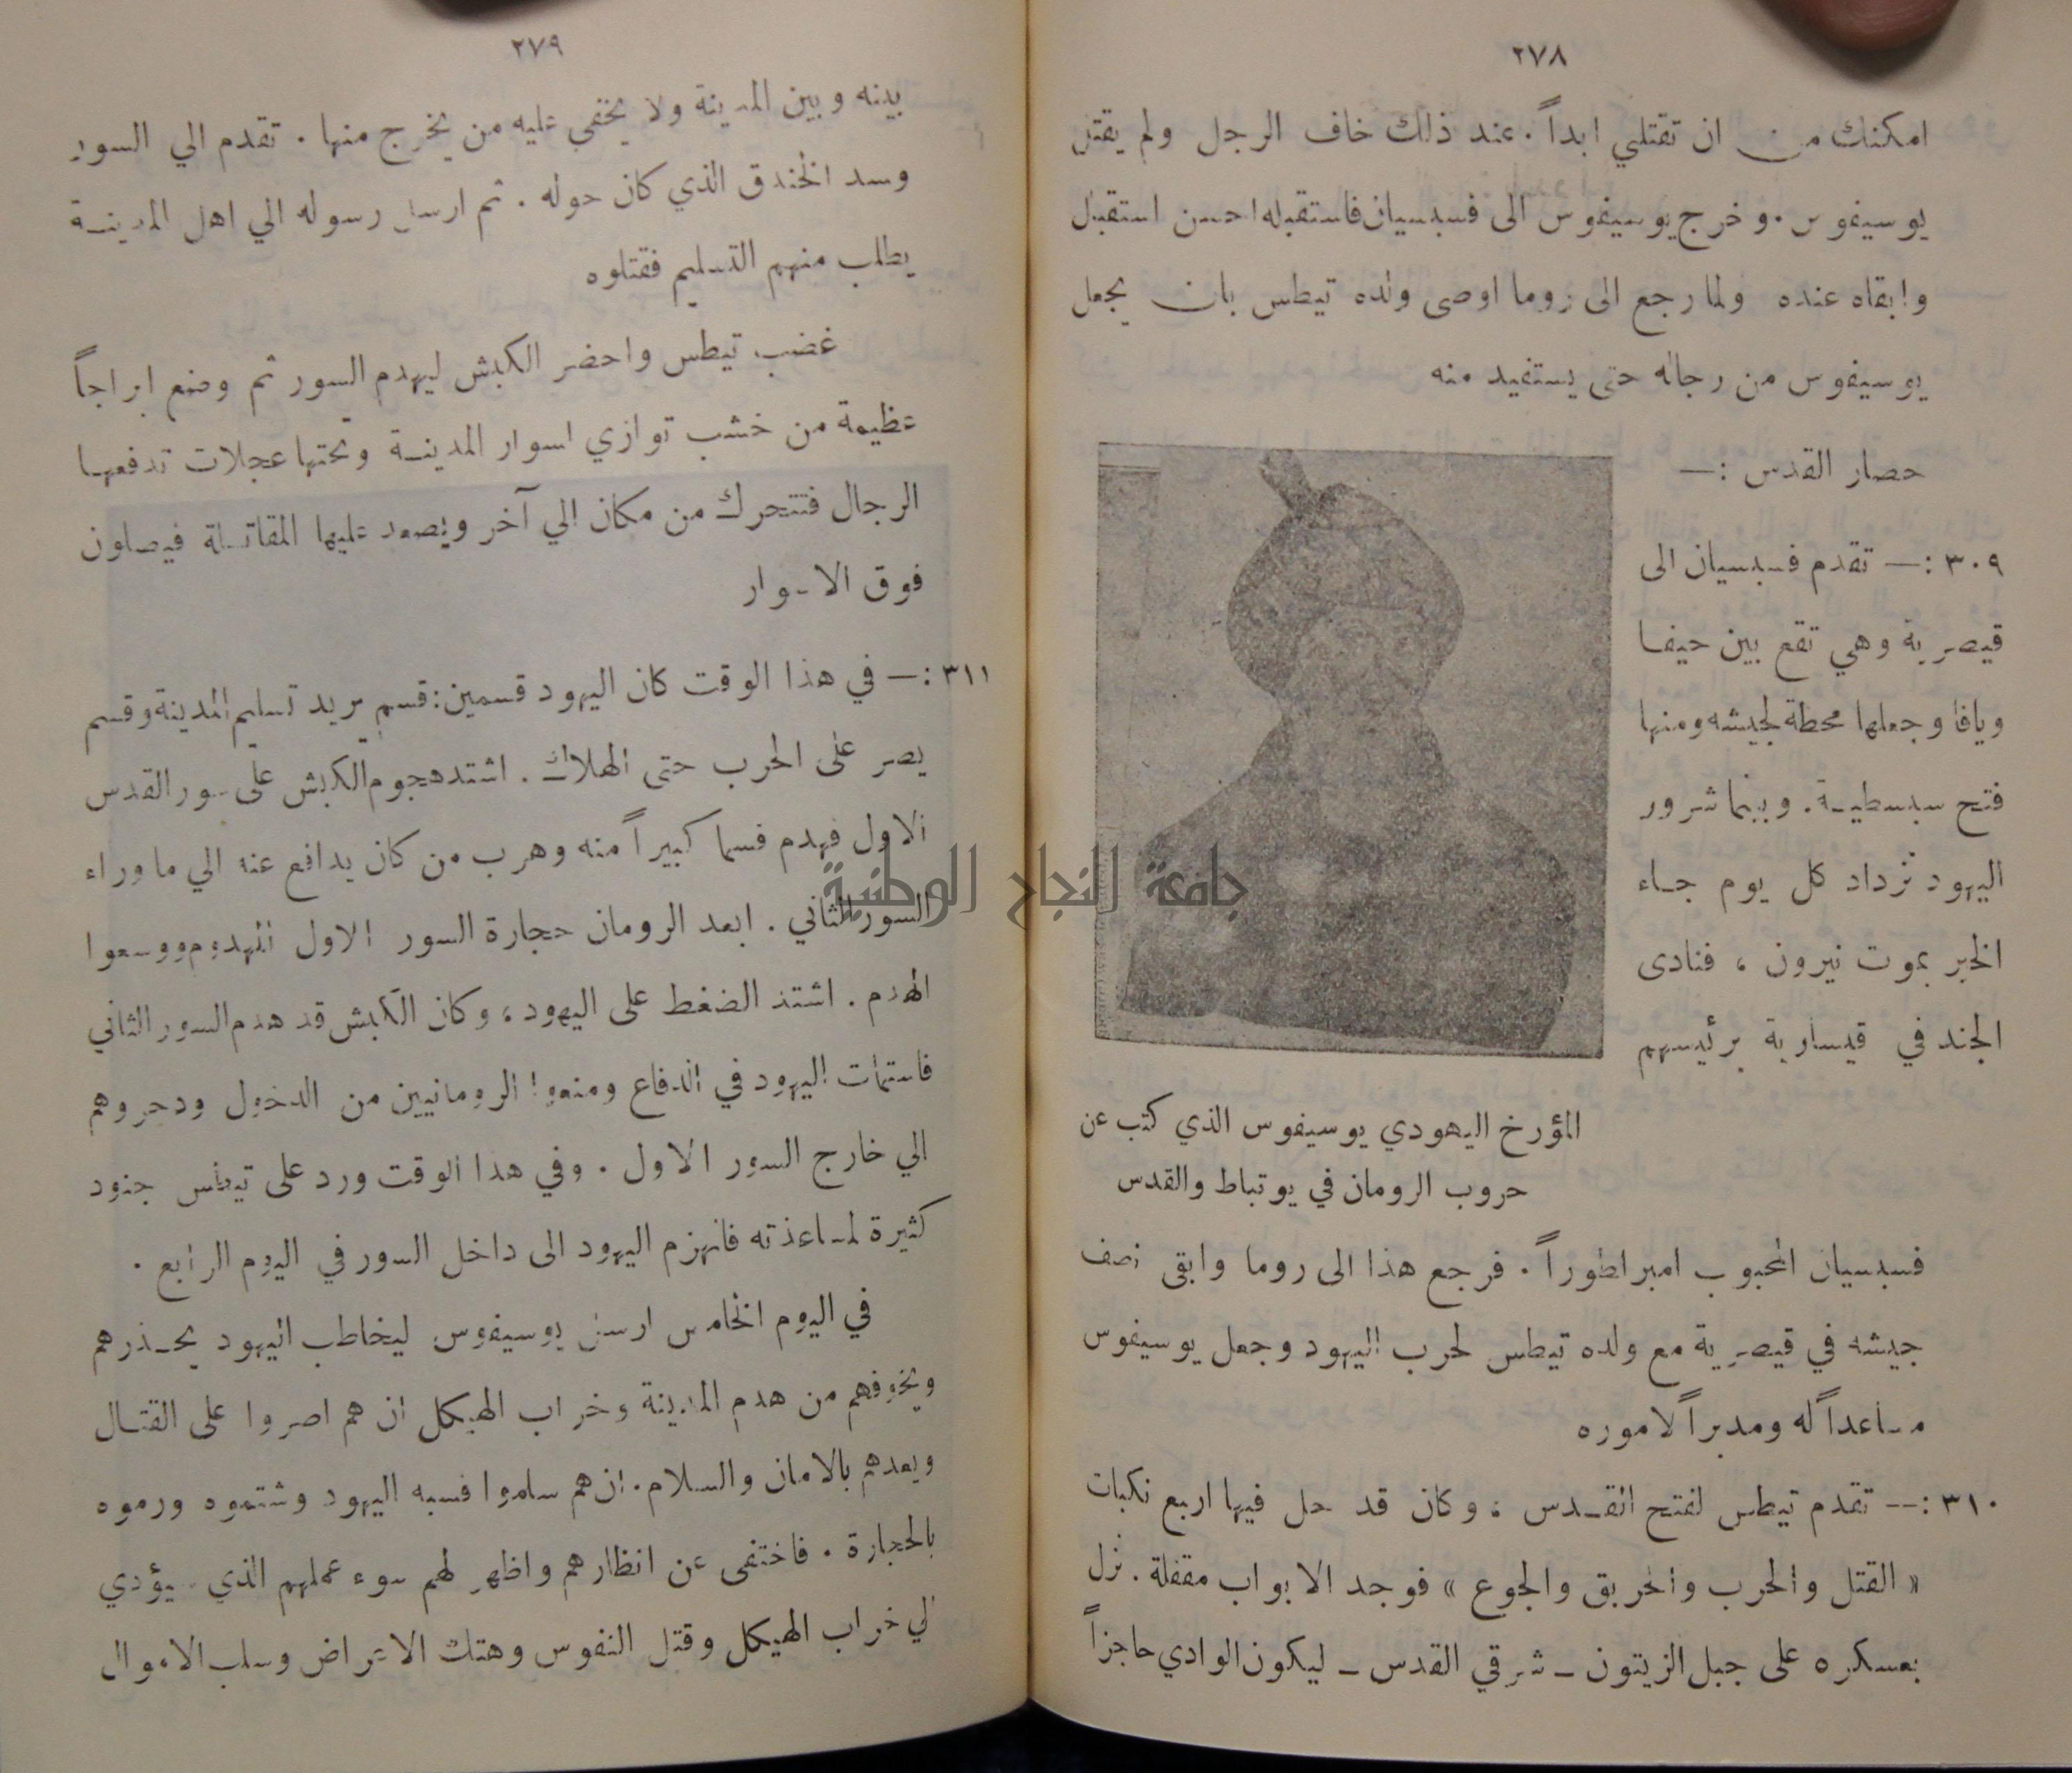 ٢٧٨
امكنك من ان تقتلي ابداً . عند ذلك خاف الرجل ولم يقتل
يوسيفوس . وخرج يوسيفوس الى فسبسيان فاستقبله احسن استقبل
وابقاه عنده ولما رجع الى روما اوصى ولده تيطس بان يجعل
يوسيفوس من رجاله حتى يستفيد منه
حصار القدس :—
٣٠٩ :— تقدم فسبسيان الى
قيصرية وهي تقع بين حيفا
ويافا وجعلها محطة لجيشه ومنها
فتح سبسطية . وبينما شرور
اليهود تزداد كل يوم جاء
الخبر بموت نيرون ، فنادى
الجند في قيسارية برئيسهم
المؤرخ اليهودي يوسيفوس الذي كتب عن
حروب الرومان في يوتباط والقدس
فسبسيان المحبوب امبراطوراً . فرجع هذا الى روما وابقى نصف
جيشه في قيصرية مع ولده تيطس لحرب اليهود وجعل يوسيفوس
مساعداً له ومدبراً لاموره
٣١٠ :— تقدم تيطس لفتح القدس ، وكان قد حل فيها اربع نكبات
« القتل والحرب والحريق والجوع » فوجد الابواب مقفلة . نزل
بعسكره على جبل الزيتون — شرقي القدس — ليكون الوادي حاجزاً
٢٧٩
بينه وبين المدينة ولا يخفى عليه من يخرج منها . تقدم الي السور
وسد الخندق الذي كان حوله . ثم ارسل رسوله الي اهل المدينة
يطلب منهم التسليم فقتلوه
غضب تيطس واحضر الكبش ليهدم السور ثم وضع ابراجاً
عظيمة من خشب توازي اسوار المدينة وتحتها عجلات تدفعها
الرجال فتتحرك من مكان الي آخر ويصعد عليها المقاتلة فيصلون
فوق الاسوار
٣١١ :— في هذا الوقت كان اليهود قسمين : قسم يريد تسليم المدينة وقسم
يصر على الحرب حتى الهلاك . اشتد هجوم الكبش على سور القدس
الاول فهدم قسما كبيراً منه وهرب من كان يدافع عنه الي ما وراء
السور الثاني . ابعد الرومان حجارة السور الاول المهدوم ووسعوا
الهدم . اشتد الضغط على اليهود ، وكان الكبش قد هدم السور الثاني
فاستمات اليهود في الدفاع ومنعوا الرومانيين من الدخول ودحروهم
الي خارج السور الاول . وفي هذا الوقت ورد على تيطس جنود
كثيرة لمساعدته فانهزم اليهود الى داخل السور في اليوم الرابع .
في اليوم الخامس ارسل يوسيفوس ليخاطب اليهود يحذرهم
ويخوفهم من هدم المدينة وخراب الهيكل ان هم اصروا على القتال
ويعدهم بالامان والسلام . ان هم سلموا فسبه اليهود وشتموه ورموه
بالحجارة . فاختفى عن انظارهم واظهر لهم سوء عملهم الذي سيؤدي
الي خراب الهيكل وقتل النفوس وهتك الاعراض وسلب الاموال
جامعة النجاح الوطنية